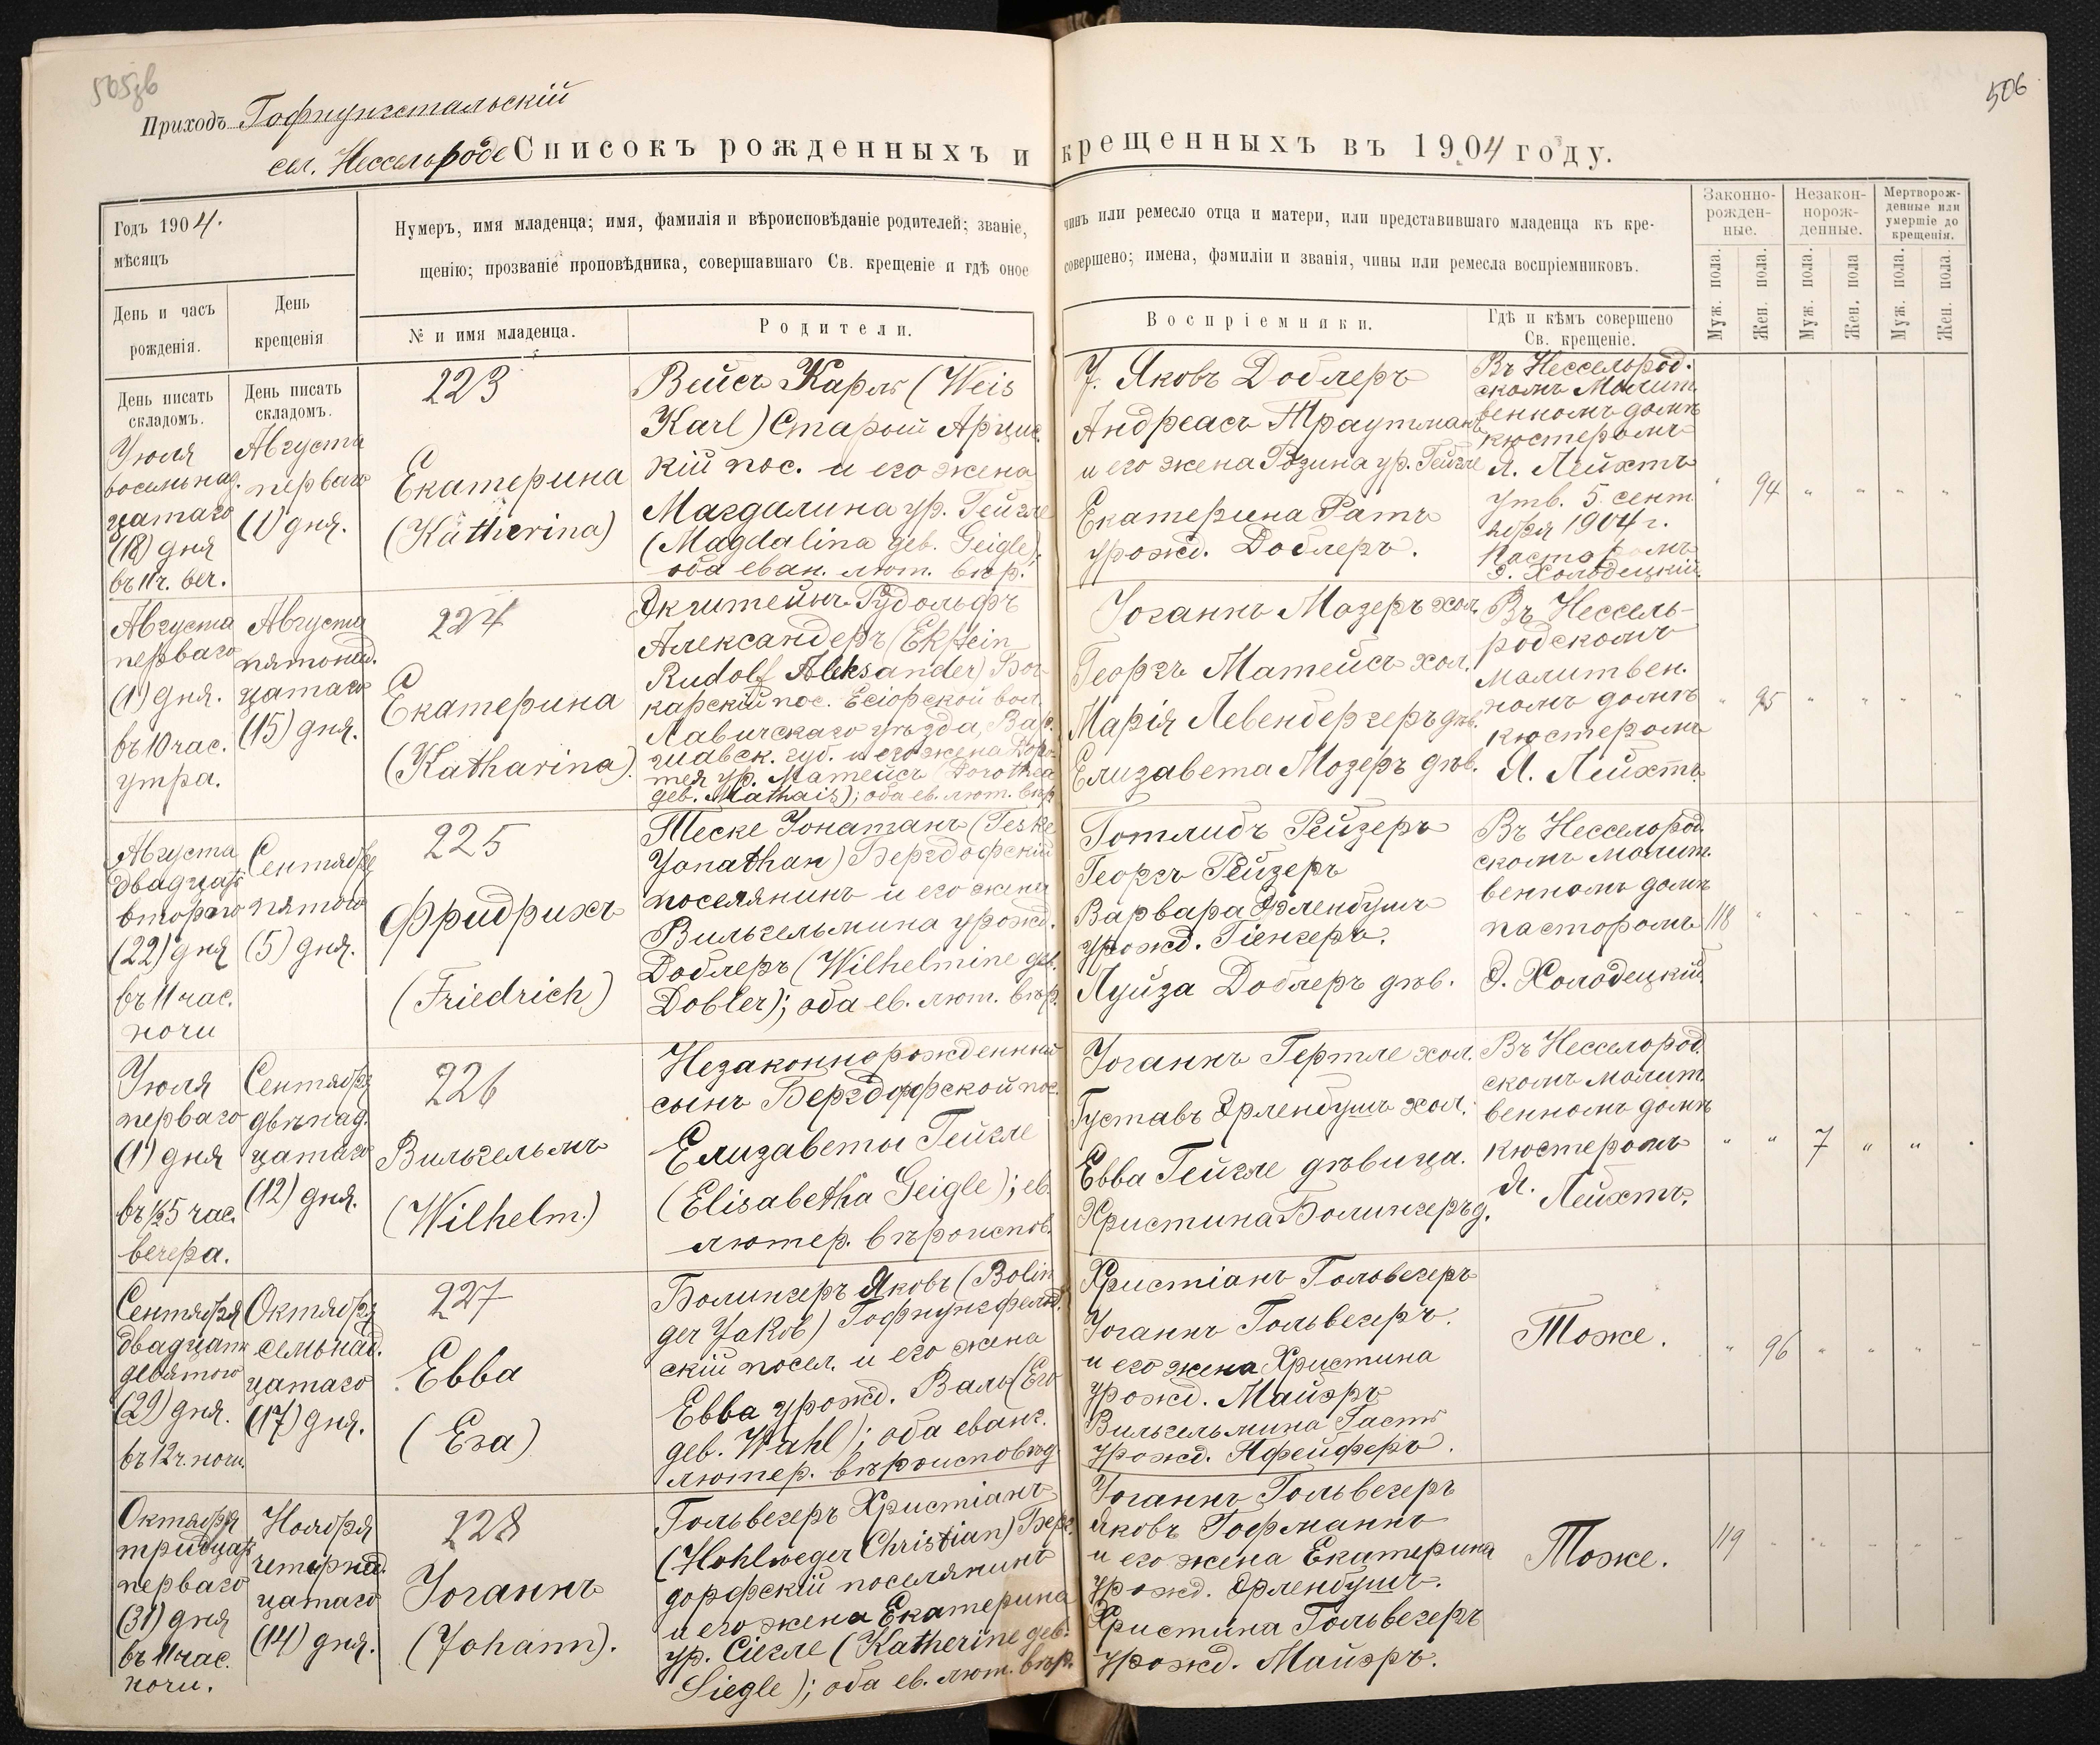 505зв
506
Приходъ Гофнунгстальскій
сел. Нессельроде Списокъ рожденныхъ и крещенныхъ въ 1904 году.
Годъ 1904.
мѣсяцъ
Нумеръ, имя младенца; имя, фамилія и вѣроисповѣданіе родителей; званіе, чинъ или ремесло отца и матери, или представившаго младенца къ кре-
щенію; прозваніе проповѣдника, совершавшаго Св. крещеніе и гдѣ оное совершено; имена, фамиліи и званія, чины или ремесла воспріемниковъ.
Законно-
рожден-
ные.
Незакон-
норож-
денные.
Мертворож-
денные или
умершіе до
крещенія.
День и часъ
рожденія.
День
крещенія
№ и имя младенца.
Родители.
Воспріемники.
Гдѣ и кѣмъ совершено
Св. крещеніе.
Муж. пола.
Жен. пола.
Муж. пола.
Жен. пола
Муж. пола.
Жен. пола.
День писать
складомъ.
Іюля
восемьнад.
цатаго
(18) дня
въ 11 ч. веч.
День писать
складомъ.
Августа
перваго
(1) дня.
223
Екатерина
(Katherina)
Вейсъ Карлъ (Weis
Karl) Старый Арциз.
кій пос. и его жена
Магдалина ур. Гейгле
(Magdalina geb. Geigle);
оба еван. лют. вѣр.
J. Яковъ Доблеръ
Андреасъ Траутманъ
и его жена Розина ур. Гейгле
Екатерина Ратъ
урожд. Доблеръ.
Въ Нессельрод.
скомъ Молит.
венномъ домѣ
кюстеромъ
Я. Лейхтъ
утв. 5 сент
ября 1904 г.
Пасторомъ
Э. Холодецкій.
" 94 " " " "
Августа
перваго
(1) дня.
въ 10 час.
утра.
Августа
пятонад.
цатаго
(15) дня.
224
Екатерина
(Katharina).
Экштейнъ Рудольфъ
Александеръ (Ekstein
Rudolf Aleksander) Бог
карскій пос. Есіорской вол.
уѣзда, Вар.
шавск. губ. и его жена Доро.
тея ур. Матейсъ (Dorothea
geb. Mathais); оба ев. лют. вѣр
Іоганнъ Мозеръ хол.
Георгъ Матейсъ хол.
Марія Левенбергеръ дѣв.
Елизавета Мозеръ дѣв.
Въ Нессель-
родскомъ
молитвен.
номъ домѣ
кюстеромъ
Я. Лейхтъ
" 95 " " " "
Августа
двадцать
второго
(22) дня
въ 11 час.
ночи
Сентября
пятого
(5) дня.
225
Фридрихъ
(Friedrich)
Теске Іонатанъ (Teske
Yonathan) Бергдофскій
поселянинъ и его жена
Вильгельмина урожд.
Доблеръ (Wilhelmine geb.
Dobler); оба ев. лют. вѣр.
Готлибъ Рейзеръ
Георгъ Рейзеръ
Варвара Эрленбушъ
урожд. Гіенгеръ.
Луйза Доблеръ дѣв.
Въ Нессельрод
скомъ молит.
венномъ домѣ
пасторомъ
Э. Холодецкій.
118 " " " " "
Іюля
перваго
(1) дня
въ ½5 час.
вечера.
Сентября
двѣнад.
цатаго
(12) дня.
226
Вильгельмъ
(Wilhelm.)
Незаконнорожденный
сынъ Бергдорфской пос.
Елизаветы Гейгле
(Elisabetha Geigle); ев.
лютер. вѣроиспов.
Іоганнъ Гертле хол.
Густавъ Эрленбушъ хол.
Евва Гейгле дѣвица.
Христина Болингеръ д.
Въ Нессельрод.
скомъ молит
венномъ домѣ
кюстеромъ
Я. Лейхтъ.
" " 7 " " "
Сентября
двадцать
девятого
(29) дня.
въ 12 ч. ночи.
Октября
семьнад.
цатаго
(17) дня.
227
Евва
(Eva)
Болингеръ Яковъ (Bolin
ger Yakob) Гофнунгфельд.
скій посел. и его жена
Евва урожд. Валь (Eva
geb. Wahl); оба еванг.
лютер. вѣроисповѣд
Христіанъ Гольвегеръ
Іоганнъ Гольвегеръ.
и его жена Христина
урожд. Майэръ
Вильгельмина Гастъ
урожд. Пфейферъ.
Тоже.
" 96 " " " "
Октября
тридцать
перваго
(31) дня
въ 11 час.
ночи.
Ноября
четырнад.
цатаго
(14) дня.
228
Іоганнъ
(Johann).
Гольвегеръ Христіанъ
(Hohlweger Christian) Берг.
дорфскій поселянинъ
и его жена Екатерина
ур. Сіегле (Katherine geb.
Siegle); оба ев. лют. вѣр.
Іоганнъ Гольвегеръ
Яковъ Гофманнъ
и его жена Екатерина
урожд. Эрленбушъ.
Христина Гольвегеръ
урожд. Майэръ.
Тоже.
119 " " " " "